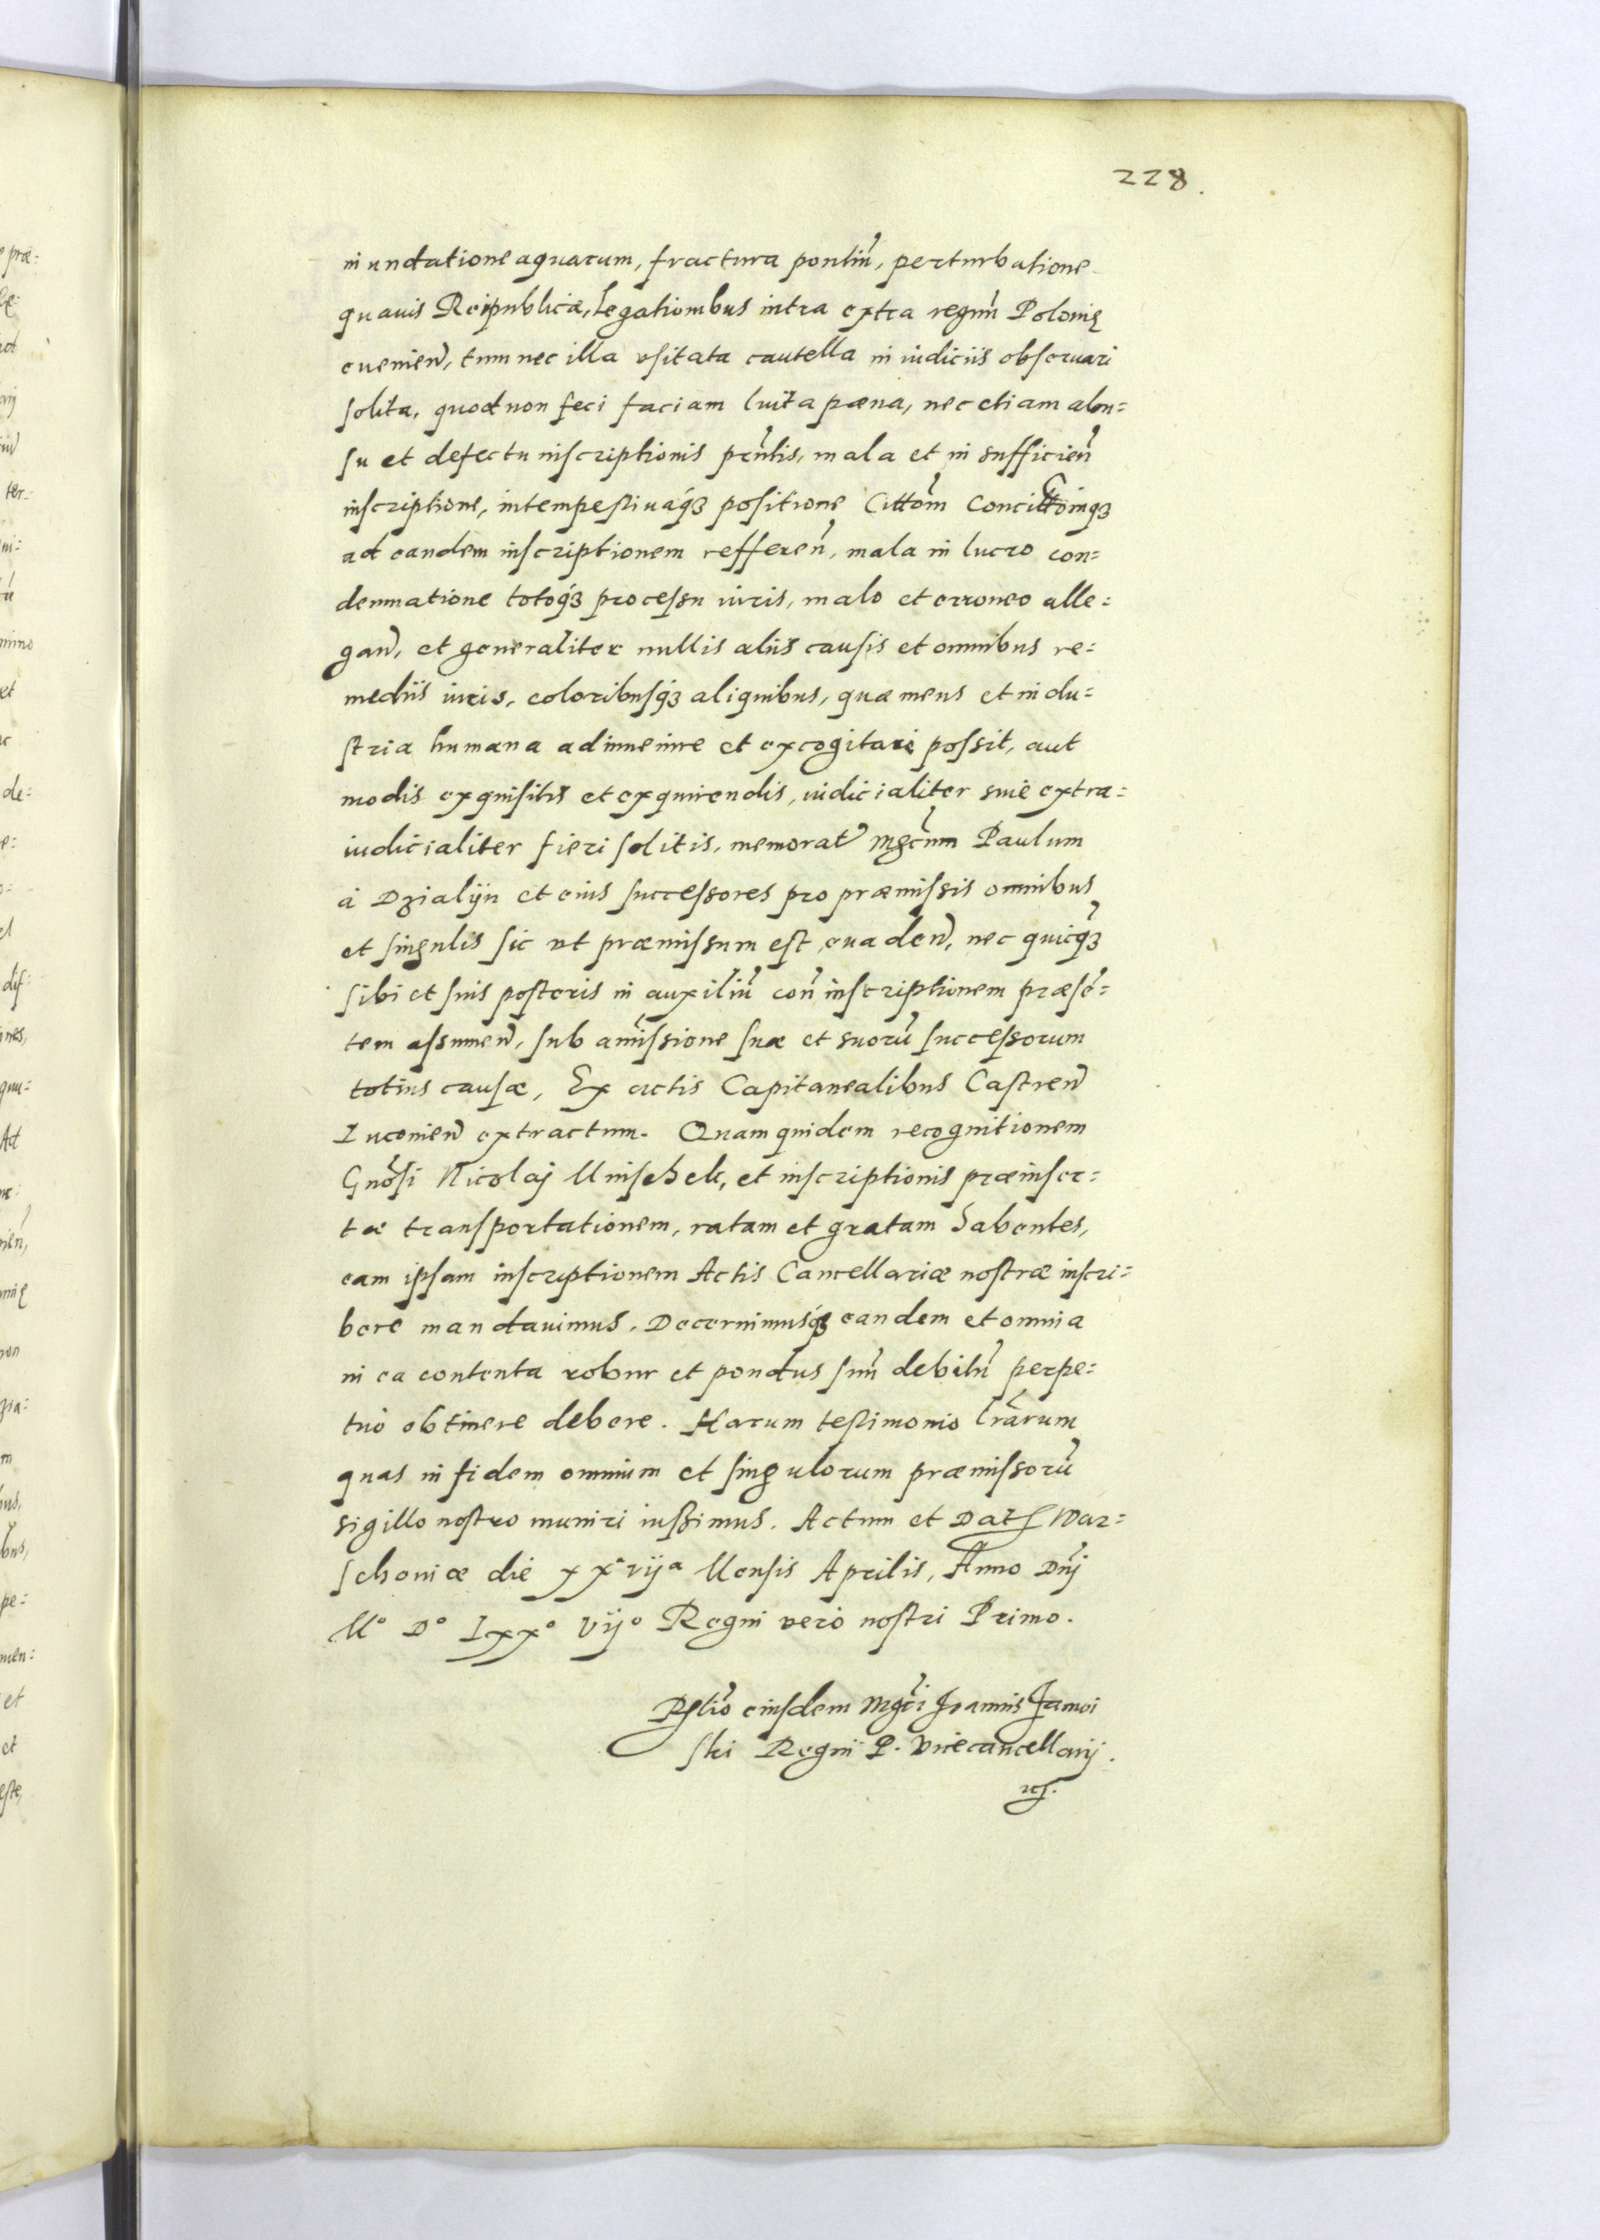 228.
inundatione aquarum, fractura pontiu᷈, perturbatione
quauis Reipublicæ, Legationibus intra extra regnu᷈ Polonię
euenien᷈, tum nec illa vsitata cautella in iudiciis obseruari
solita, quod non feci faciam luita pæna, nec etiam abu=
su et defectu inscriptionis pn᷈tis, mala et in sufficien᷈
inscriptione, intempestiuaq́ȝ positione Citto᷈m Concitto᷈inqȝ
ad eandem inscriptionem refferen᷈, mala in lucro con=
demnatione totoq́ȝ processu iuris, malo et erroneo alle=
gan᷈, et generaliter nullis aliis causis et omnibus re=
mediis iuris, coloribusq́ȝ aliquibus, quæ mens et indu=
stria humana adinuenire et excogitari possit, aut
modis exquisitis et exquirendis, iudicialiter siue extra=
iudicialiter fieri solitis, memorat᷈ Mgcu᷈m Paulum
à Dzialÿn et eius successores pro præmissis omnibus
et singulis sic vt præmissum est euaden᷈, nec quicq́ȝ
sibi et suis posteris in auxiliu᷈ con᷈ inscriptionem præse᷈=
tem assumen᷈, sub amissione suæ et suoru᷈ successorum
totius causæ, Ex actis Capitanealibus Castren᷈
Iuconien᷈ extractum. Quam quidem recognitionem
Gno᷈si Nicolaj Mnischek, et inscriptionis præinser=
tæ transportationem, ratam et gratam habentes,
eam ipsam inscriptionem Actis Cancellariæ nostræ inscri=
bere mandauimus. Decernimusq́ȝ eandem et omnia
in ea contenta robur et pondus suu᷈ debitu᷈ perpe=
tuò obtinere debere. Harum testimonio lr᷈arum
quas in fidem omnium et singulorum præmissoru᷈
sigillo nostro muniri iussimus. Actum et Dat᷈ War=
schoniæ die xx vijª Mensis Aprilis, Anno Dn᷈j
M° D° Lxx° Vij° Regni verò nostri Primo.
Rl᷈tio eiusdem Mgc᷈i Joannis Zamoi
ski Regni P. Vicecancellarij.